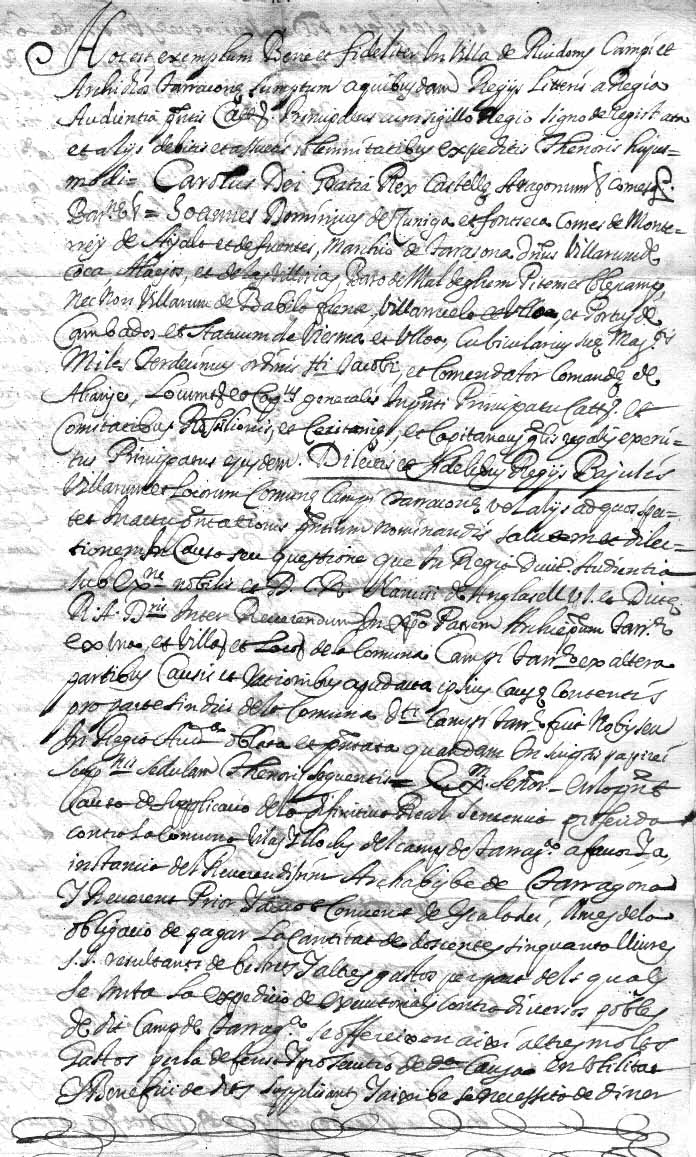 Hoc est exemplum Bene et fideliter In Villa de Riudoms Campi et
Archidis Tarracone sumptum a quibusdam Regijs Litteris a Regia
Audientia pntis Principatus cum sigillo Regio signo de Regist
et alijs debitis et assuetis solemnitatibus expeditis Thenoris hujus-
modi = Carolus Dei Gratia Rex Castelle Aragonum & comes
Bar = Joannes Dominicus de Zuniga et fonseca Comes de Monte-
rrey de Ayala et de fuentes, Marchio de Tarasona Dnus Villarum de
Coca Alaejos, et de Baro de Maldeghem Pitem et
Nec Non Villarum de et Portus de
Cambados et Statuum de Viesma et Ulloa, Cubicularius sue Mag
Miles ordinis Sti Jacobi, et Comendator Comande de
Locum et Cap generalis In pnti Principatu Catt et
Comitatibus Rossilionis, et Ceritanie, et Capitaneus exerci-
tus Principatus ejusdem. Dilectis et fidelibus Regijs Bajulis
Villarum et Locorum Comune Campi Tarracone vel alijs ad quos spe-
ctet In actu pntationis pntium nominandis salutem et dilec-
tionem In Causa seu questione que In Regia Audientia
sub nobilis et D. de Anglasell
R. A. Inter Reverendum In Xpo Patrem Archiepum tarr
ex una, et Villas et Loca de la Comuna Campi tarr ex altera
partibus Causis et rationibus ipsius Cause Contentis
pro parte sindici de la Comuna dti Campi tarr fuit Nobis seu
In Regia Aud oblata et pntata quaedam In scriptis papirei
sedulam Thenoris sequentis = Exm Señor = En lo
Causa de supplicacio de la difinitiva Real sentencia proferida
contra la Comuna Vilas y llochs del camp de Tarrag a favor y a
instancia del Reverendissim Archabisbe de Tarragona
Y Reverent Prior y Convent de Scaladei, Ames de la
obligacio de pagar la Cantitat de doscentes sinquanta lliures
resultants de bestrets y altres gastos per part dels quals
se insta la expedicio de executorias contra diversos pobles
de dit Camp de Tarrag se offereixen aixi altres molts
Gastos per la defensa y prosecucio de dta Causa en Utilitat
Y Benefici de dits supplicants y aixi be se necessita de diner